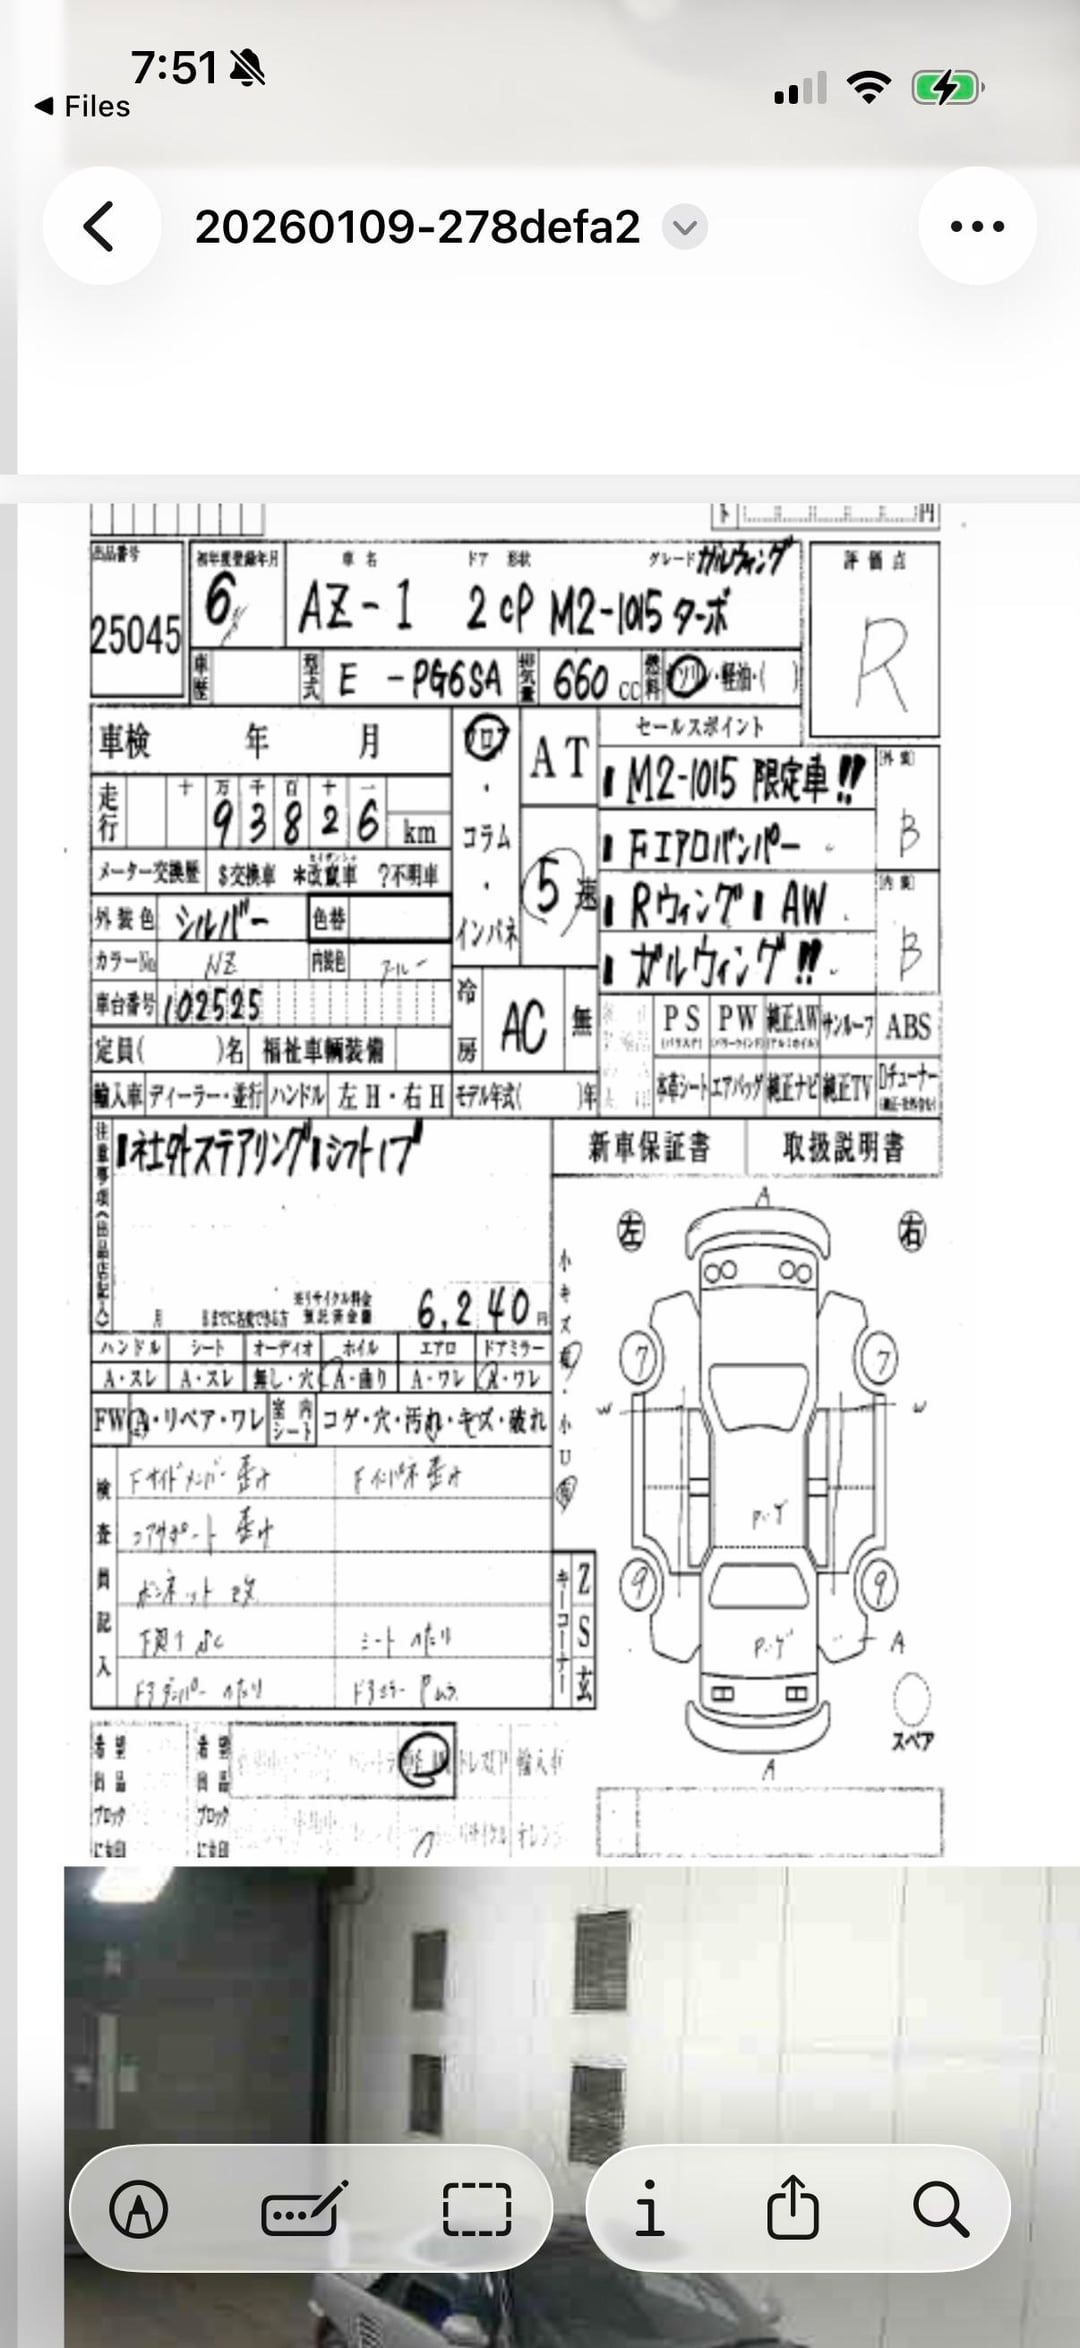 7:51
Files
20260109-278defa2
円
出品番号
25045
初年度登録年月
6
車名 ドア 形状 グレード ガルウィング
AZ-1 2 CP M2-1015 ターボ
評価点
R
車歴
型式 E -PG6SA
排気量 660 cc
燃料 ガソリン・軽油・( )
車検 年 月
フロア・コラム・インパネ
AT
5速
セールスポイント
M2-1015 限定車!!
Fエアロバンパー
Rウィング AW
ガルウィング!!
外装 B
内装 B
走行 十 万 千 百 十 一
93826 km
メーター交換歴 $交換車 *改竄車 ?不明車
外装色 シルバー 色替
カラーNo NZ 内装色
車台番号 102525
定員( )名 福祉車輌装備
冷房 AC 無
PS PW 純正AW サンルーフ ABS
本革シート エアバッグ 純正ナビ 純正TV Dチューナー
輸入車 ディーラー・並行 ハンドル 左H・右H モデル年式( )年
注意事項(出品店記入)
社外ステアリング シフトノブ
新車保証書 取扱説明書
月 日までに名変できる方
※リサイクル料金預託済金額 6,240 円
ハンドル シート オーディオ ホイル エアロ ドアミラー
A・スレ A・スレ 無し・穴 A・曲り A・ワレ A・ワレ
FW A・リペア・ワレ 室内シート コゲ・穴・汚れ・キズ・破れ
小キズ有・小U有
検査員記入
Fサイドメンバー 歪み
Fインパネ 歪み
コアサポート 歪み
ボンネット
シート へたり
ドアダンパー へたり
ドアミラー
キーコーナー
Z
S
玄
左 右
A
7 7
W W
P・ゲ
9 9
P・ゲ
A
A
スペア
希望出品ブロックに○印
希望出品ブロックに○印
輸入車